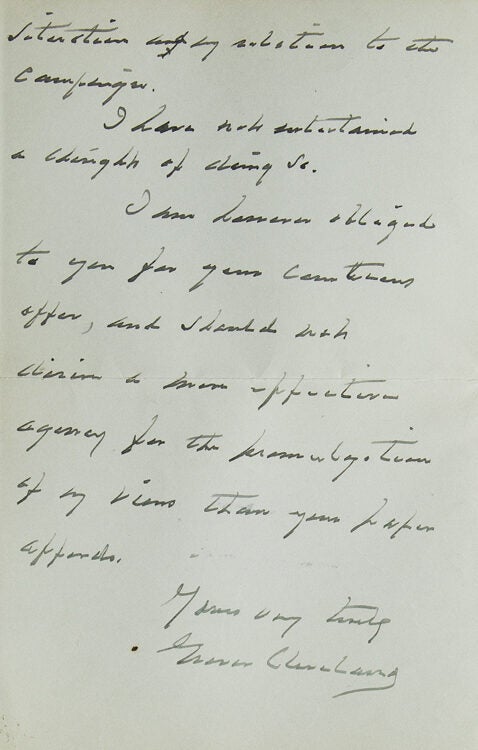 situation or my relation to the
Campaign.
I have not entertained
a thought of doing so.
I am however obliged
to you for your Courteous
offer, and should not
desire a more effective
agency for the promulgation
of my views than your paper
affords.
Yours very truly
Grover Cleveland